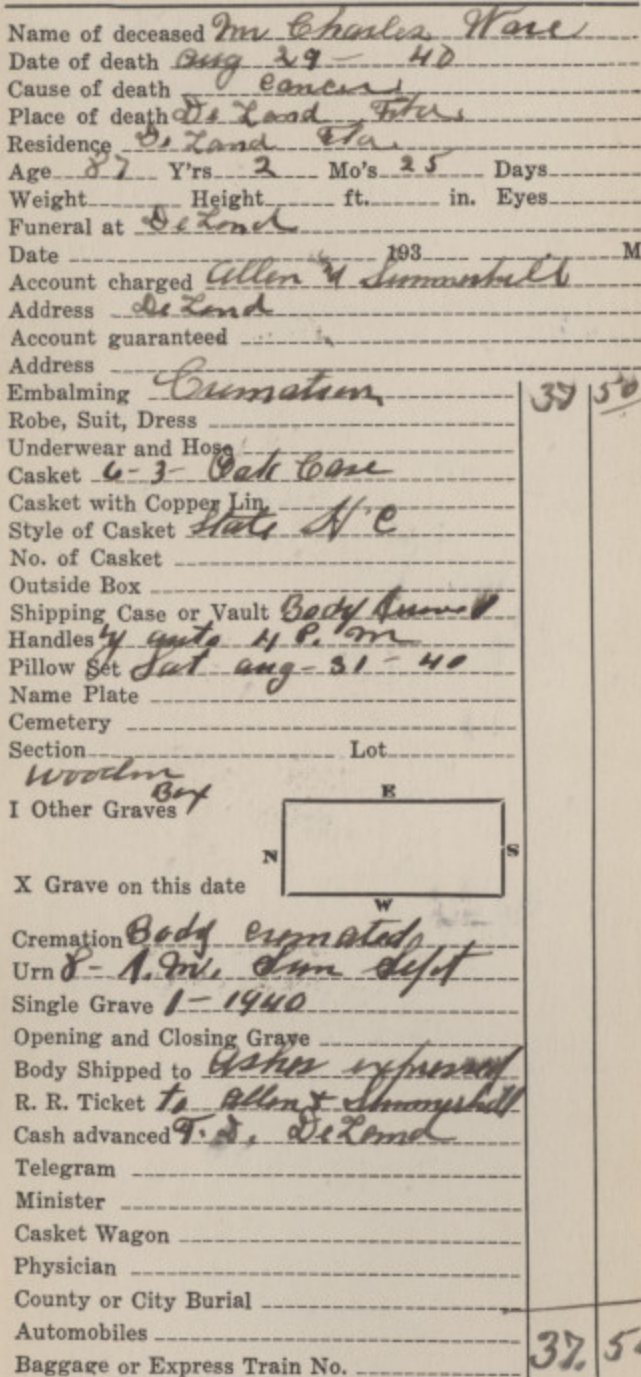 Name of deceased Mr Charles Ware
Date of death Aug 29 - 40
Cause of death cancer
Place of death De Land Fla
Residence De Land Fla
Age 87 Y'rs 2 Mo's 25 Days
Weight Height ft. in. Eyes
Funeral at De Land
Date 193 M
Account charged Allen & Summerhill
Address De Land
Account guaranteed
Address
Embalming Cremation 37 50
Robe, Suit, Dress
Underwear and Hose
Casket 6-3- Oak Case
Casket with Copper Lin.
Style of Casket State
No. of Casket
Outside Box
Shipping Case or Vault Body
Handles auto 4 P. m
Pillow Set Sat aug - 31 - 40
Name Plate
Cemetery
Section Lot
Wooden
Box
I Other Graves
E
N S
X Grave on this date
W
Cremation Body cremated
Urn 8 - A.M. Sun Sept
Single Grave 1 - 1940
Opening and Closing Grave
Body Shipped to Ashes expressed
R. R. Ticket to Allen & Summerhill
Cash advanced De Land
Telegram
Minister
Casket Wagon
Physician
County or City Burial
Automobiles
Baggage or Express Train No. 37. 50